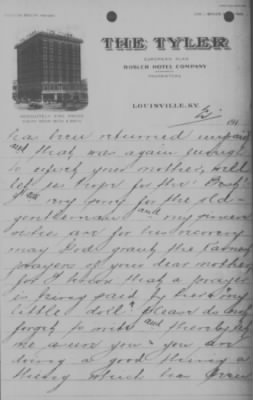 THE TYLER
EUROPEAN PLAN
ROSLER HOTEL COMPANY
PROPRIETORS
ABSOLUTELY FIRE PROOF
LOUISVILLE, KY. 191
has been returned
and that was again enough
to upset your mother, well
let us hope for the "Best"
I am very sorry for the old
gentleman and my sincere
wishes are for his recovery
may God grant the earnest
prayers of your dear mother
for I know that a prayer
is being said by her "my
little doll" please do not
forget to write and thereby let
me assure you you are
doing a good thing a
thing which has been